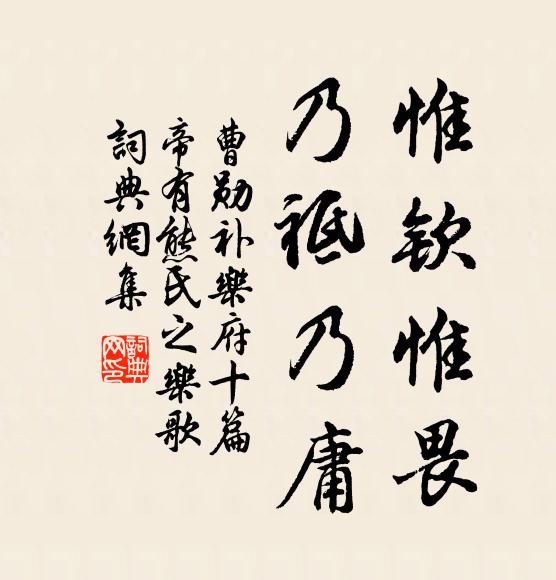 惟欽惟畏
乃祗乃庸
曹勛补樂府十篇
帝有熊氏之樂歌
詞典網集
詞典網印